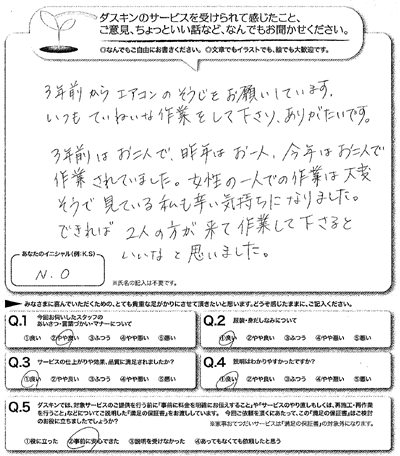 ダスキンのサービスを受けられて感じたこと、
ご意見、ちょっといい話など、なんでもお聞かせください。
◎なんでもご自由にお書きください。◎文章でもイラストでも、絵でも大歓迎です。
3年前からエアコンのそうじをお願いしています。
いつもていねいな作業をして下さり、ありがたいです。
3年前はお二人で、昨年はお一人、今年はお二人で
作業されていました。女性の一人での作業は大変
そうで見ている私も辛い気持ちになりました。
できれば2人の方が来て作業して下さると
いいなと思いました。
あなたのイニシャル(例:K.S)
N.O
※氏名の記入は不要です。
みなさまに喜んでいただくための、とても貴重な足がかりにさせて頂きたいと思います。どうぞ感じたままに、ご記入ください。
Q.1 今回お伺いしたスタッフの
あいさつ・言葉づかい・マナーについて
①良い ②やや良い ③ふつう ④やや悪い ⑤悪い
Q.2 服装・身だしなみについて
①良い ②やや良い ③ふつう ④やや悪い ⑤悪い
Q.3 サービスの仕上がりや効果、品質に満足されましたか?
①良い ②やや良い ③ふつう ④やや悪い ⑤悪い
Q.4 説明はわかりやすかったですか?
①良い ②やや良い ③ふつう ④やや悪い ⑤悪い
Q.5 ダスキンでは、対象サービスのご提供を行う前に「事前に料金を明確にお伝えすること」や「サービスのやり直しもしくは、再施工・再作業
を行うこと」などについてご説明した「満足の保証書」をお渡ししています。今回ご依頼を頂くにあたって、この「満足の保証書」はご検討
のお役に立ちましたでしょうか?
※家事おてつだいサービスは「満足の保証書」の対象外になります。
①役に立った ②事前に安心できた ③説明を受けなかった ④あってもなくても依頼したと思う